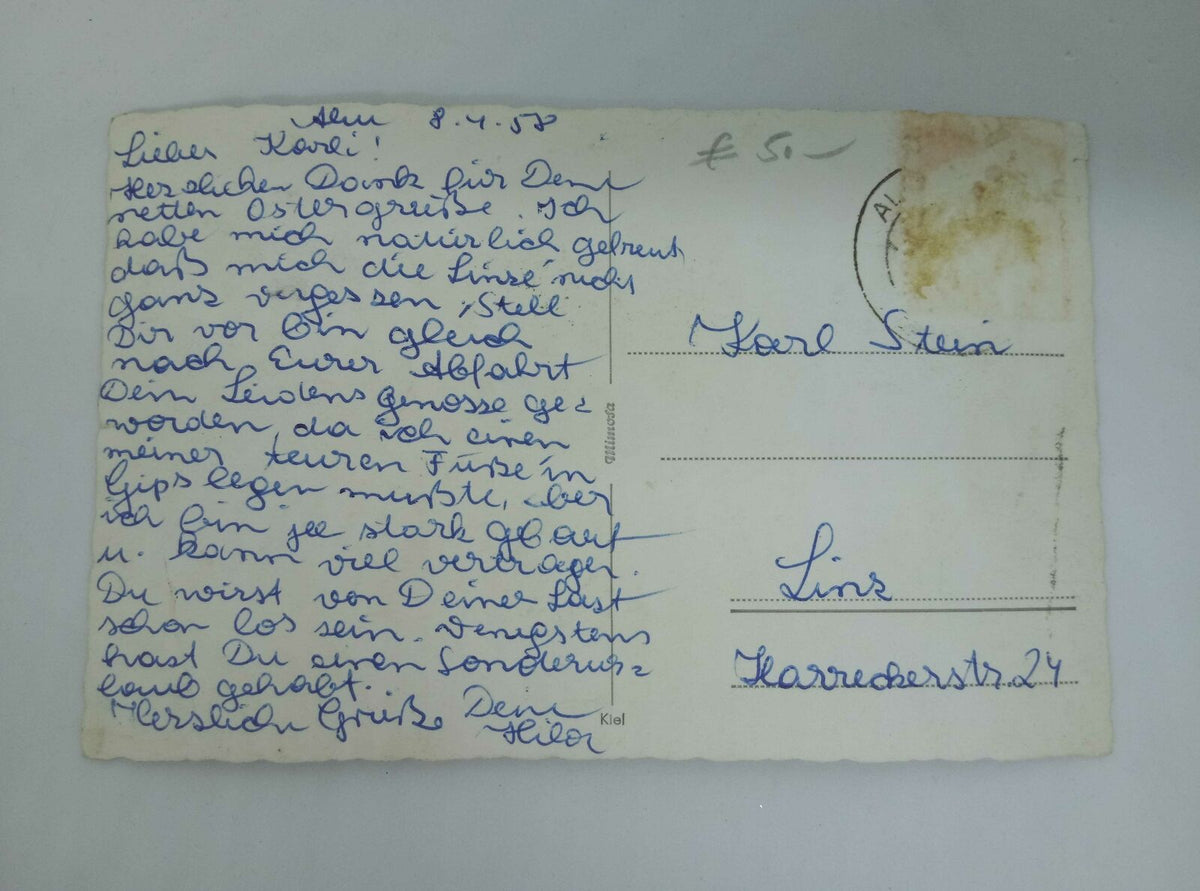 Alm 8.4.58
Lieber Karli!
Herzlichen Dank für Deine
netten Ostergrüße. Ich
habe mich natürlich gefreut
daß mich die Linzer nicht
ganz vergessen. Stell
Dir vor bin gleich
nach Eurer Abfahrt
Dein Leidensgenosse ge=
worden, da ich einen
meiner teuren Füße in
Gips legen mußte, aber
ich bin ja stark gebaut
u. kann viel vertragen.
Du wirst von Deiner Last
schon los sein. Wenigstens
hast Du einen Sonderur=
laub gehabt.
Herzliche Grüße Deine
€ 50.-
AL
Karl Stein
Mimosa
Linz
Harrerstr. 24
Kiel